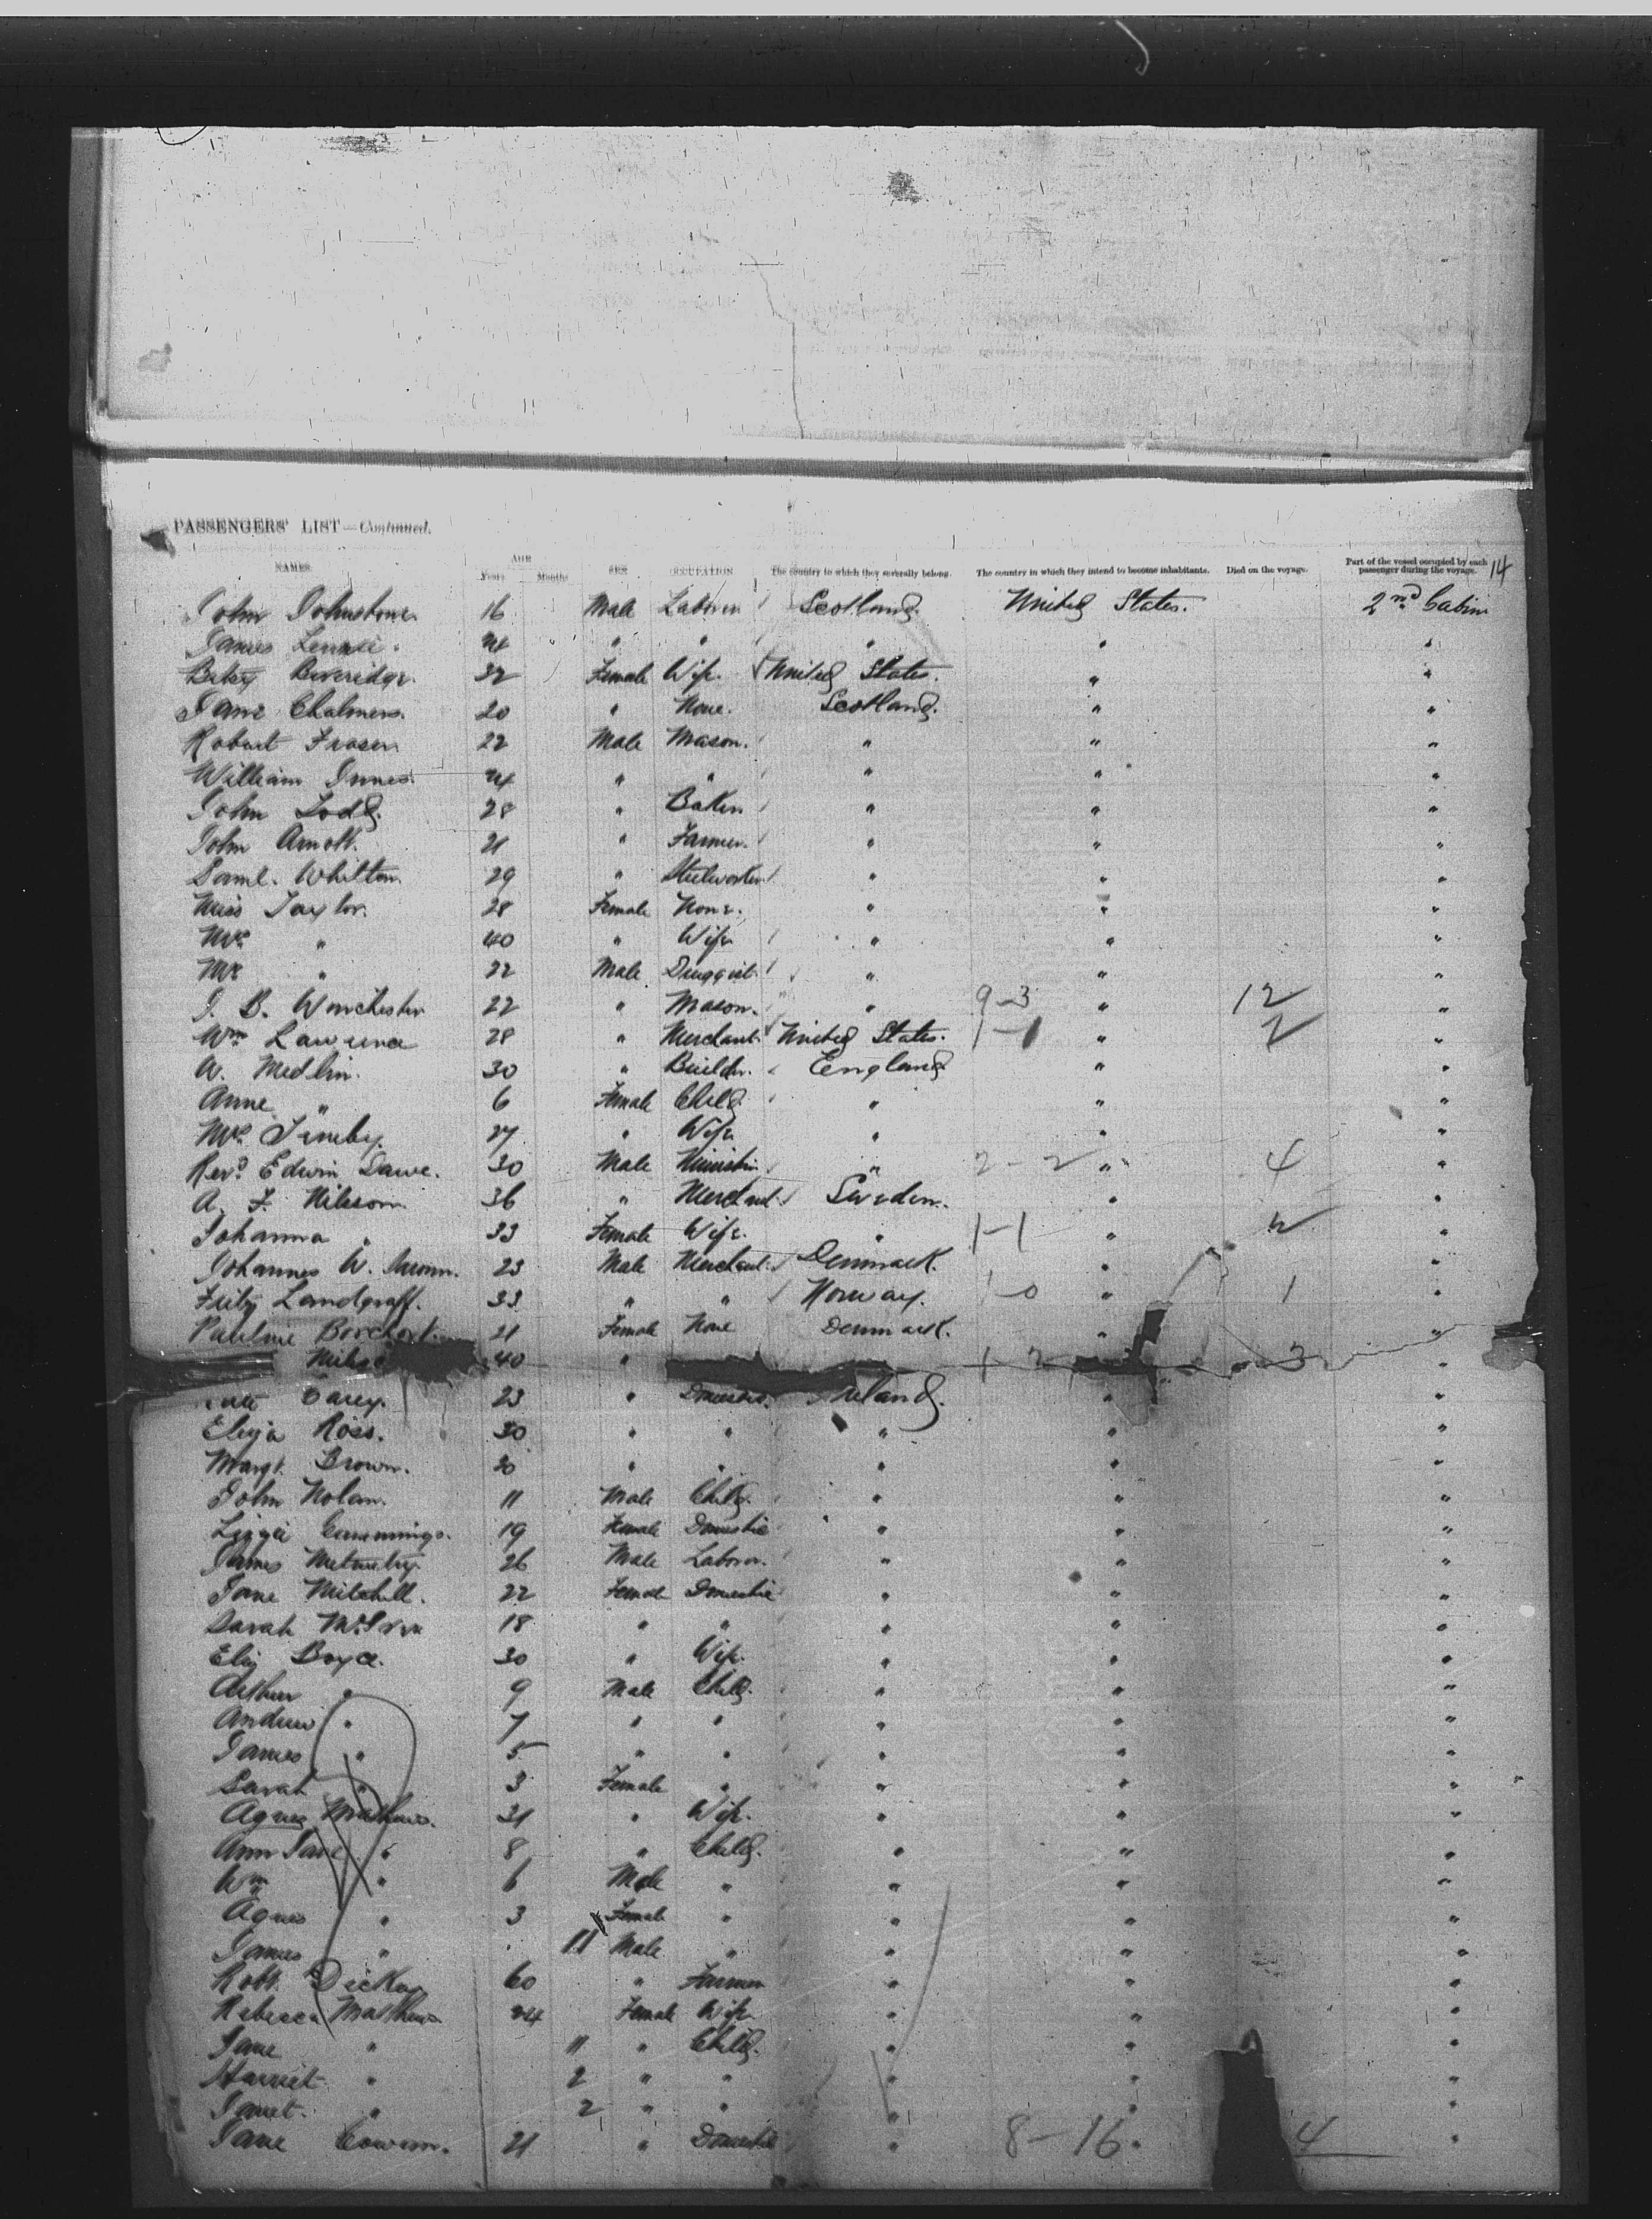 PASSENGERS' LIST—Continued.
NAMES. AGE Years Months SEX OCCUPATION The country to which they severally belong. The country in which they intend to become inhabitants. Died on the voyage. Part of the vessel occupied by each passenger during the voyage. 14
John Johnstone 16 Male Laborer Scotland United States. 2nd Cabin
James Lennie 24 " " " " "
Betsy Beveridge. 32 Female Wife. United States. " "
Jane Chalmers. 20 " None. Scotland. " "
Robert Fraser 22 Male Mason. " " "
William Innes 24 " " " " "
John Todd. 28 " Baker " " "
John Arnott. 21 " Farmer. " " "
Saml. Whitton 29 " Steelworker " " "
Miss Taylor. 28 Female None. " " "
Mrs " 40 " Wife " " "
Mr " 22 Male Druggist " " "
J. B. Worchester 22 " Mason. " 9-3 " 12 "
Wm Lawrence 28 " Merchant United States. 1-1 " 2 "
W. Medlin. 30 " Builder. England " "
Anne " 6 Female Child " " "
Mrs 27 " Wife " " "
Revd Edwin Dawe. 30 Male Minister " 2-2 " 4 "
A. F. Nilsson 36 " Merchant Sweden. " "
Johanna " 33 Female Wife. " 1-1 " 2 "
Johannes W. 23 Male Merchant. Denmark. " "
Fritz Landgraff. 33 " " Norway. 1-0 " 1 "
Pauline Borchert. 21 Female None Denmark. " "
40 " 1-2 3 "
Carey. 23 " Domestic. Ireland. " "
Eliza Ross. 30 " " " " "
Margt. Brown. 20 " " " " "
John Nolan. 11 Male Child. " " "
Lizzie Cummings. 19 Female Domestic " " "
James 26 Male Laborer. " " "
Jane Mitchell. 22 Female Domestic " " "
Sarah 18 " " " " "
Eliz Boyce. 30 " Wife. " " "
Arthur " 9 Male Child. " " "
Andrew " 7 " " " " "
James " 5 " " " " "
Sarah " 3 Female " " " "
Agnes Mathews. 31 " Wife. " " "
Ann Jane " 8 " Child. " " "
Wm " 6 Male " " " "
Agnes " 3 Female " " " "
James " 11 Male " " " "
Robt. Dickey 60 " Farmer " " "
Rebecca Mathews 24 Female Wife " " "
Jane " 11 " Child. " " "
Harriet " 2 " " " " "
Janet. " 2 " " " " "
Jane Cowan. 21 " Domestic " 8-16 " 4 "